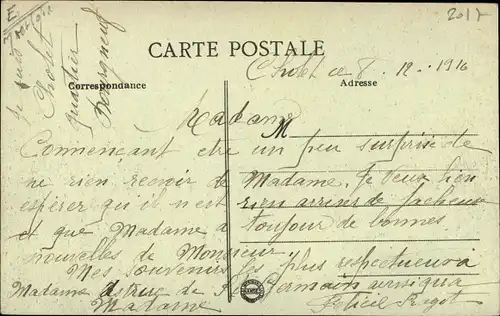 2017
CARTE POSTALE
Cholet ce 8. 12. 1916
Correspondance
Adresse
Je suis
Cholet
quartier
Bourgneuf
Madame
M
Commençant etre un peu surprise de
ne rien recevoir de Madame, Je veux bien
espérer qu il n est rien arriver de facheux
et que Madame a toujour de bonnes
nouvelles de Monsieur,
Mes souvenirs les plus respectueux a
Madame de St Germain ainsi qua
Madame Felicie